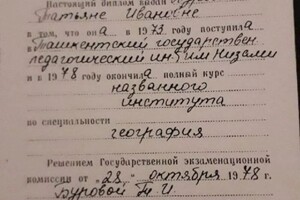 Настоящий диплом выдан
Татьяне Ивановне
в том, что она в 1973 году поступила
в Ташкентский государствен.
педагогический ин-т им Низами
и в 1978 году окончила полный курс
названного
института
по специальности
география
Решением Государственной экзаменационной
комиссии от „28" октября 1978 г.
Буровой Т. И.